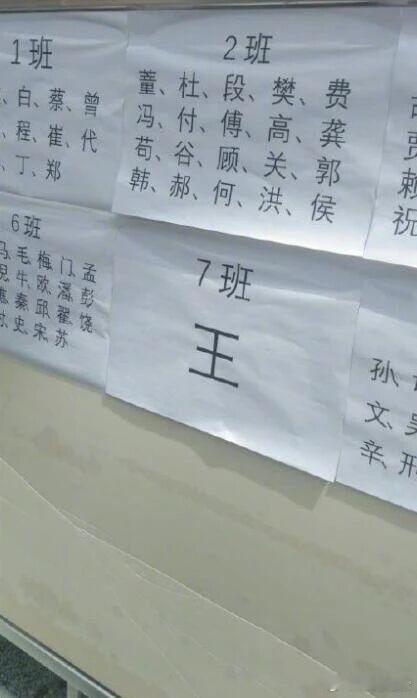 1班
、白、蔡、曾
、程、崔、代
、丁、郑
2班
董、杜、段、樊、费
冯、付、傅、高、龚
苟、谷、顾、关、郭
韩、郝、何、洪、侯
赖
祝
6班
马、毛、梅、门、孟
倪、牛、欧、潘、彭
秦、邱、翟、饶
、史、宋、苏
7班
王
孙、
文、吴
辛、邢